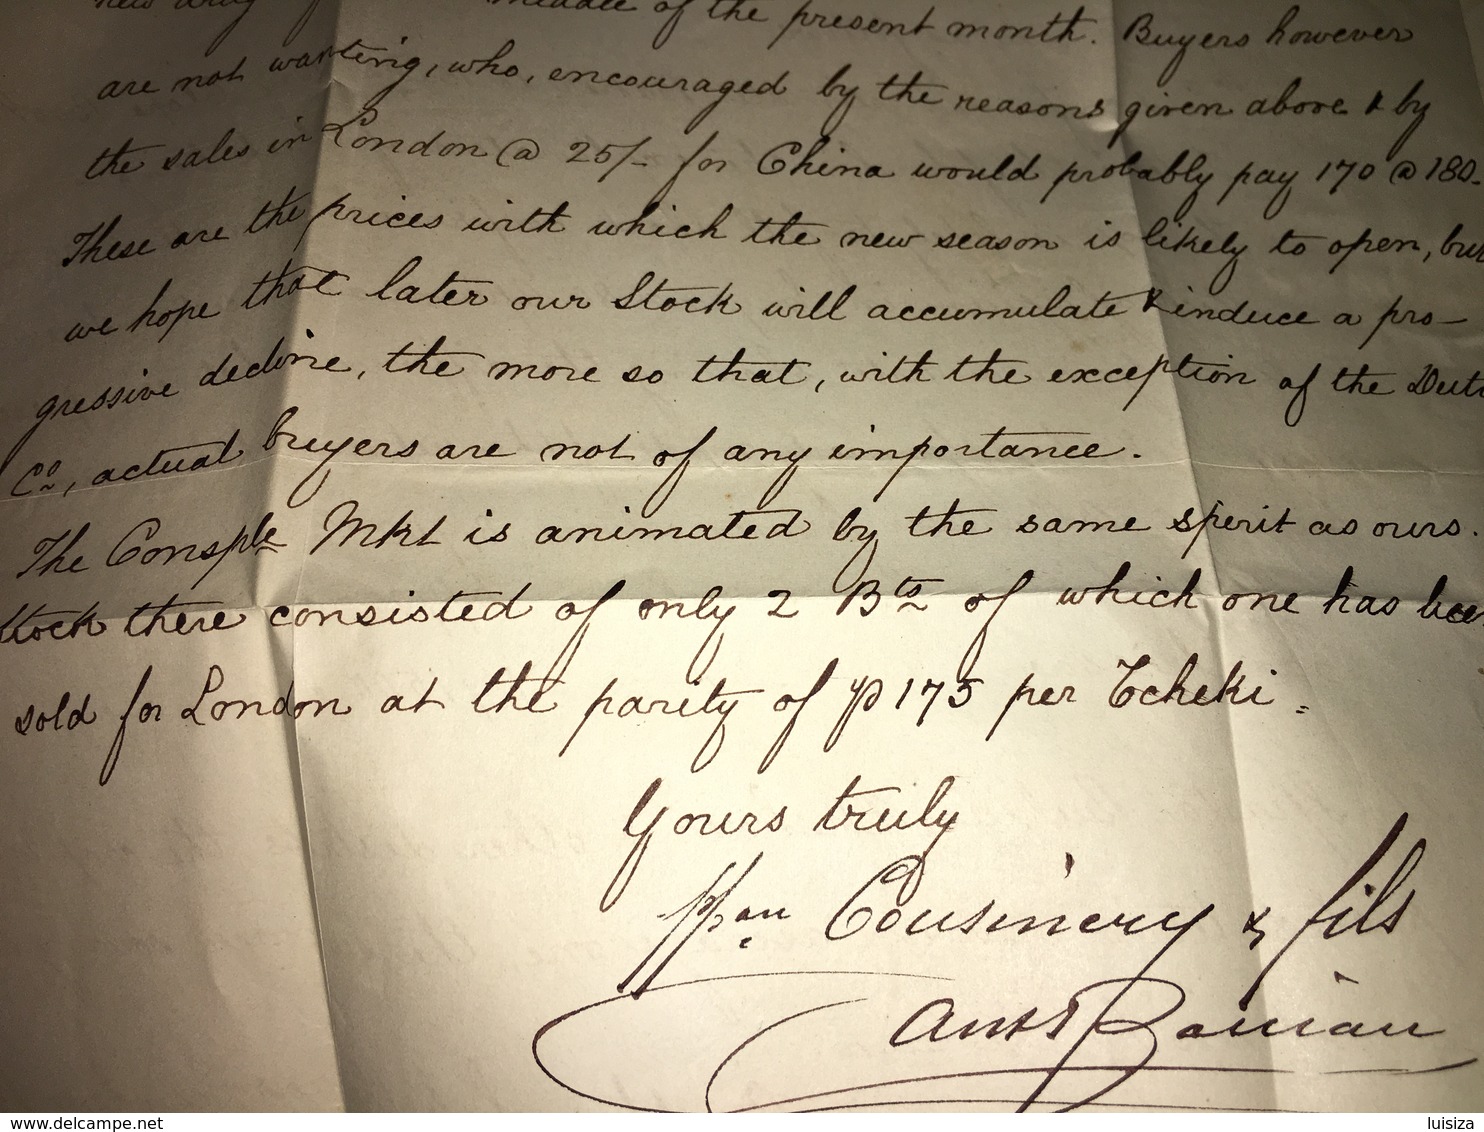 new drug middle of the present month. Buyers however
are not wanting, who, encouraged by the reasons given above & by
the sales in London @ 25/- for China would probably pay 170 @ 180.
These are the prices with which the new season is likely to open, but
we hope that later our Stock will accumulate & induce a pro-
gressive decline, the more so that, with the exception of the Dutch
Co, actual buyers are not of any importance.
The Consple Mkt is animated by the same spirit as ours.
Stock there consisted of only 2 Bs of which one has been
sold for London at the parity of 175 per Tcheki.
Yours truly
Ppon Cousinery & fils
www.delcampe.net
luisiza